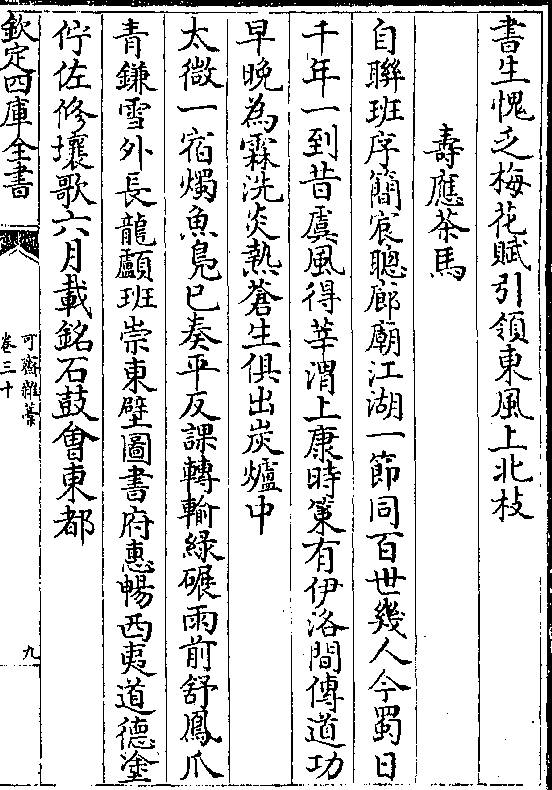 書生愧乏梅花賦引領東風上北枝
壽應茶馬
自聯班序簡宸聰廊廟江湖一節同百世幾人今蜀日
千年一到昔虞風得莘渭上康時䇿有伊洛間傳道功
早晚為霖洗炎熱蒼生俱出炭爐中
太微一宿燭魚鳬已奏平反課轉輸綠碾雨前舒鳳爪
青鎌雪外長龍顱班崇東壁圖書府惠暢西夷道德塗
佇佐修壤歌六月載銘石鼓會東都
欽定四庫全書
可齋雜藁
卷三十
九